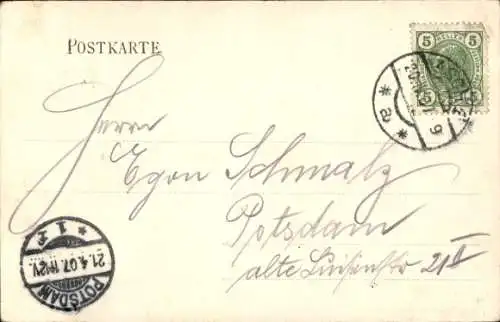 POSTKARTE
5 HELLER 5
5 5
* a *
Herrn
Egon Schmalz
Potsdam
alte Luisenstr 21 II
* 1 f
21.4.07. 11-12V.
POTSDAM